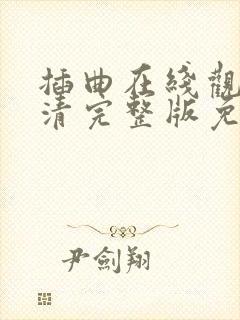 插曲在綫觀
清完整版免
尹劍翔